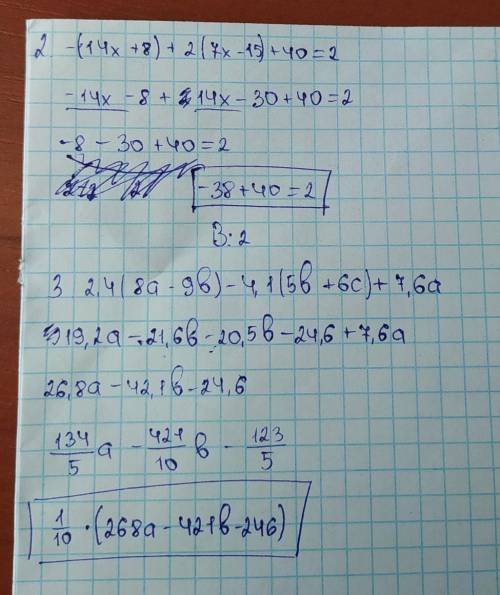 2 -(14x+8)+2(7x-15)+40=2
-14x-8+14x-30+40=2
-8-30+40=2
-38+40=2
В:2
3 2,4(8а-9в)-4,1(5в+6с)+7,6а
19,2а-21,6в-20,5в-24,6+7,6а
26,8а-42,1в-24,6
134/5 а - 421/10 в - 123/5
1/10 · (268а-421в-246)